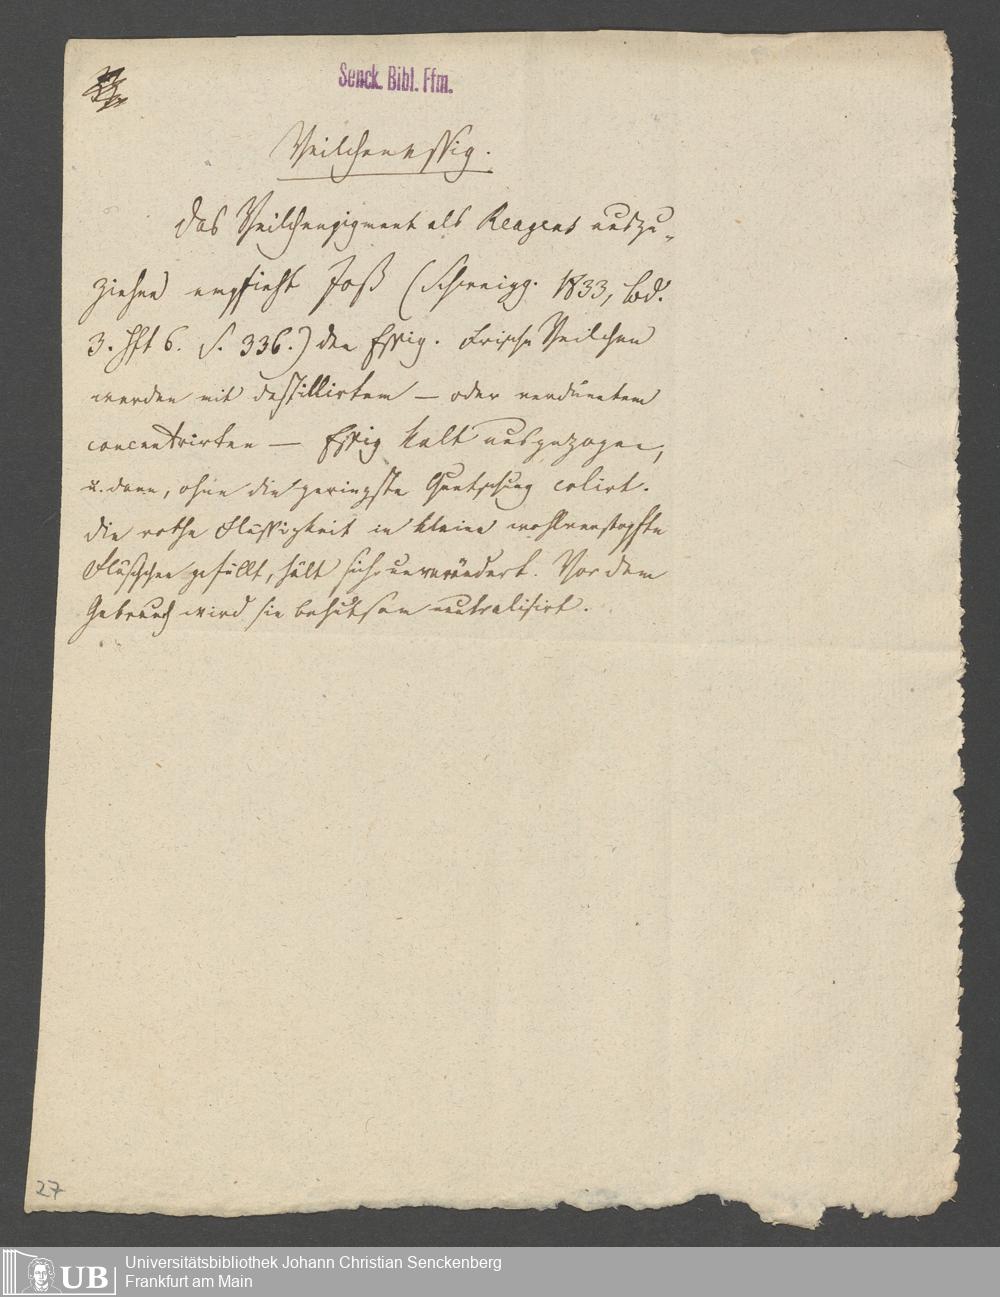 Senck. Bibl. Ffm.
Veilchenessig.
Das Veilchenpigment als Reagens auszu-
ziehen empfieht Joß (Schweigg. 1833, Bd.
3. Hft 6. S. 336.) den Essig. Frische Veilchen
werden mit destillirtem — oder verdünntem
concentrirten — Essig kalt ausgezogen,
u. dann, ohne die geringste Quetschung colirt.
Die rothe Flüssigkeit in kleine wohlverstopfte
Fläschchen gefüllt, hält sich unverändert. Vor dem
Gebrauch wird sie behutsam neutralisirt.
27
UB
Universitätsbibliothek Johann Christian Senckenberg
Frankfurt am Main